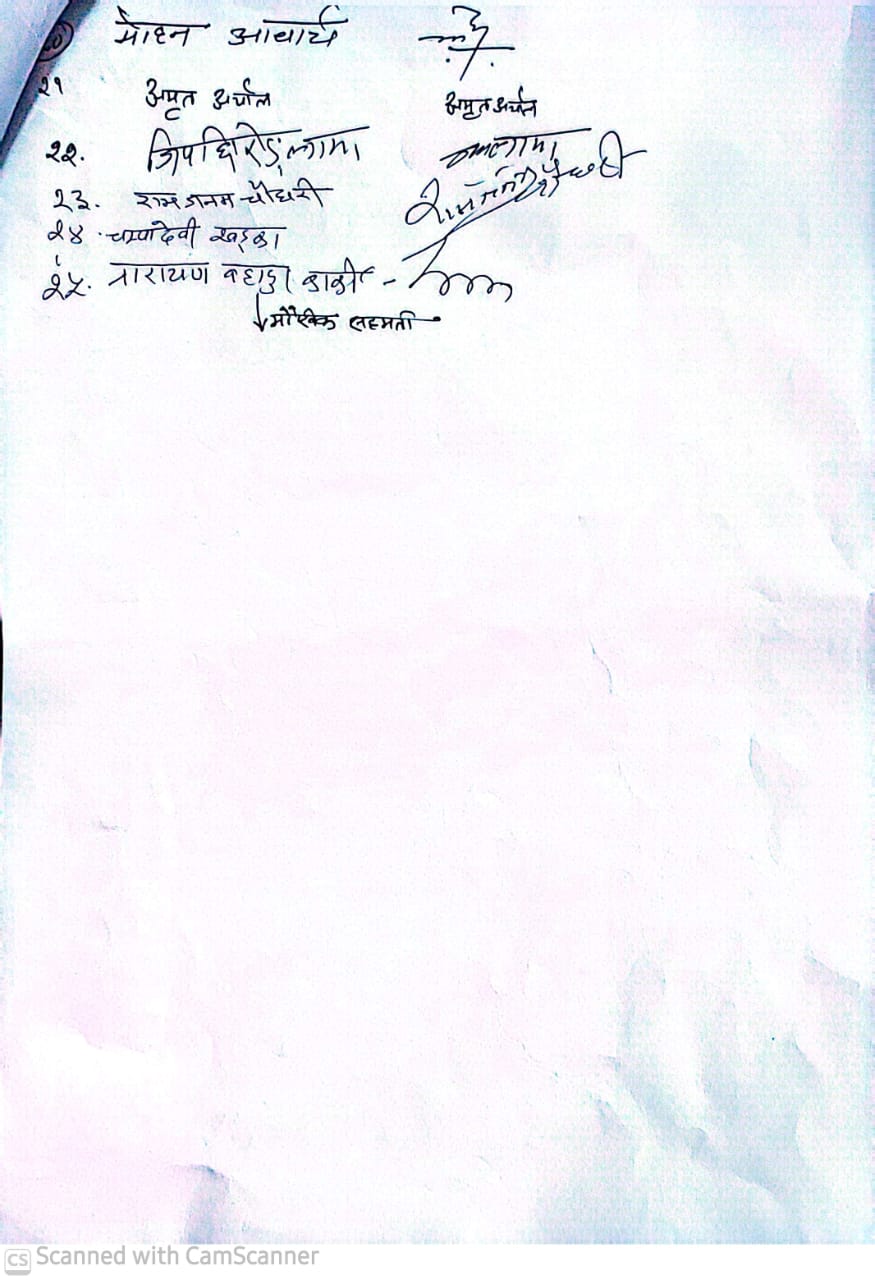 मोहन आचार्य
२१ अमृत अर्याल अमृत अर्याल
२२. लामा
२३. रामजनम चौधरी
२४. चम्पादेवी खड्का
२५. नारायण बहादुर कार्की -
↓ मौखिक सहमती
CS Scanned with CamScanner